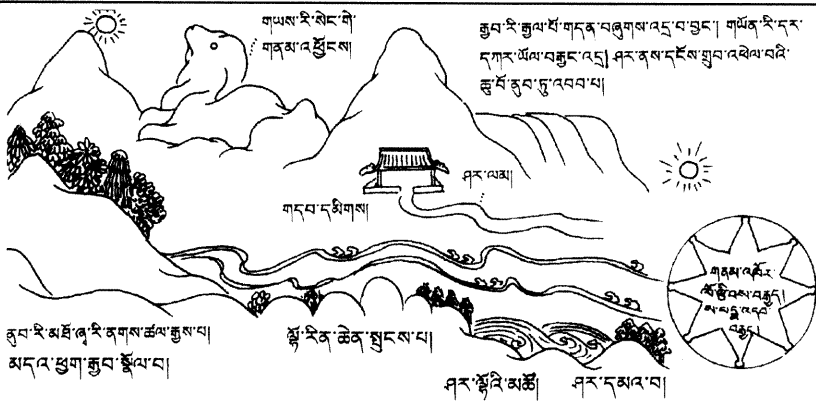 གཡས་རི་སེང་གེ་
གནམ་འཕྱོངས།
རྒྱབ་རི་རྒྱལ་པོ་གདན་བཞུགས་འདྲ་བ་བྱང་། གཡོན་རི་དར་
དཀར་ཡོལ་བརྒྱང་འདྲ། ཤར་ནས་དངོས་གྲུབ་འཕེལ་བའི་
ཆུ་བོ་ནུབ་ཏུ་འབབ་པ།
ཤར་ལམ།
གདབ་དམིགས།
གནམ་འཁོར་
ལོ་རྩིབས་བརྒྱད།
ས་པདྨ་འདབ་
བརྒྱད།
ནུབ་རི་མཐོ་ཞྭ་རི་ནགས་ཚལ་རྒྱས་བ།
མདའ་ཕྱག་རྒྱབ་སྣོལ་བ།
ལྷོ་རིན་ཆེན་སྤུངས་པ།
ཤར་ལྷོའི་མཚོ།
ཤར་དམའ་བ།